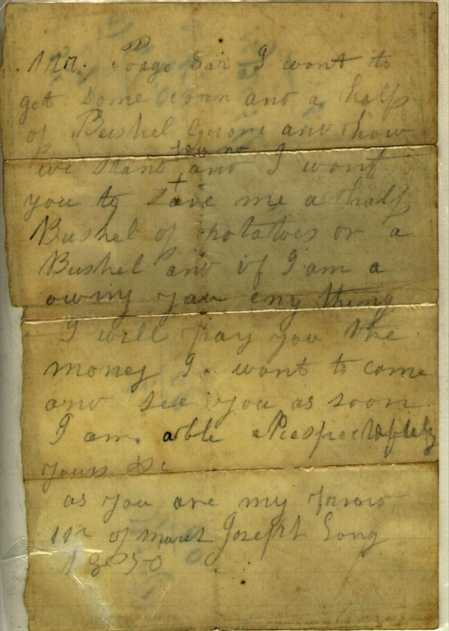 Mr. Page Sir I wont to
get some corn and a half
of Bushel and how
we stand and I wont
you to Save me a half
Bushel of potatoes or a
Bushel and if I am a
owing you eny thing
I will pay you the
money I wont to come
and see you as soon
I am able Respectfuly
yours &c
as you are my
11 of Joseph Long
1850